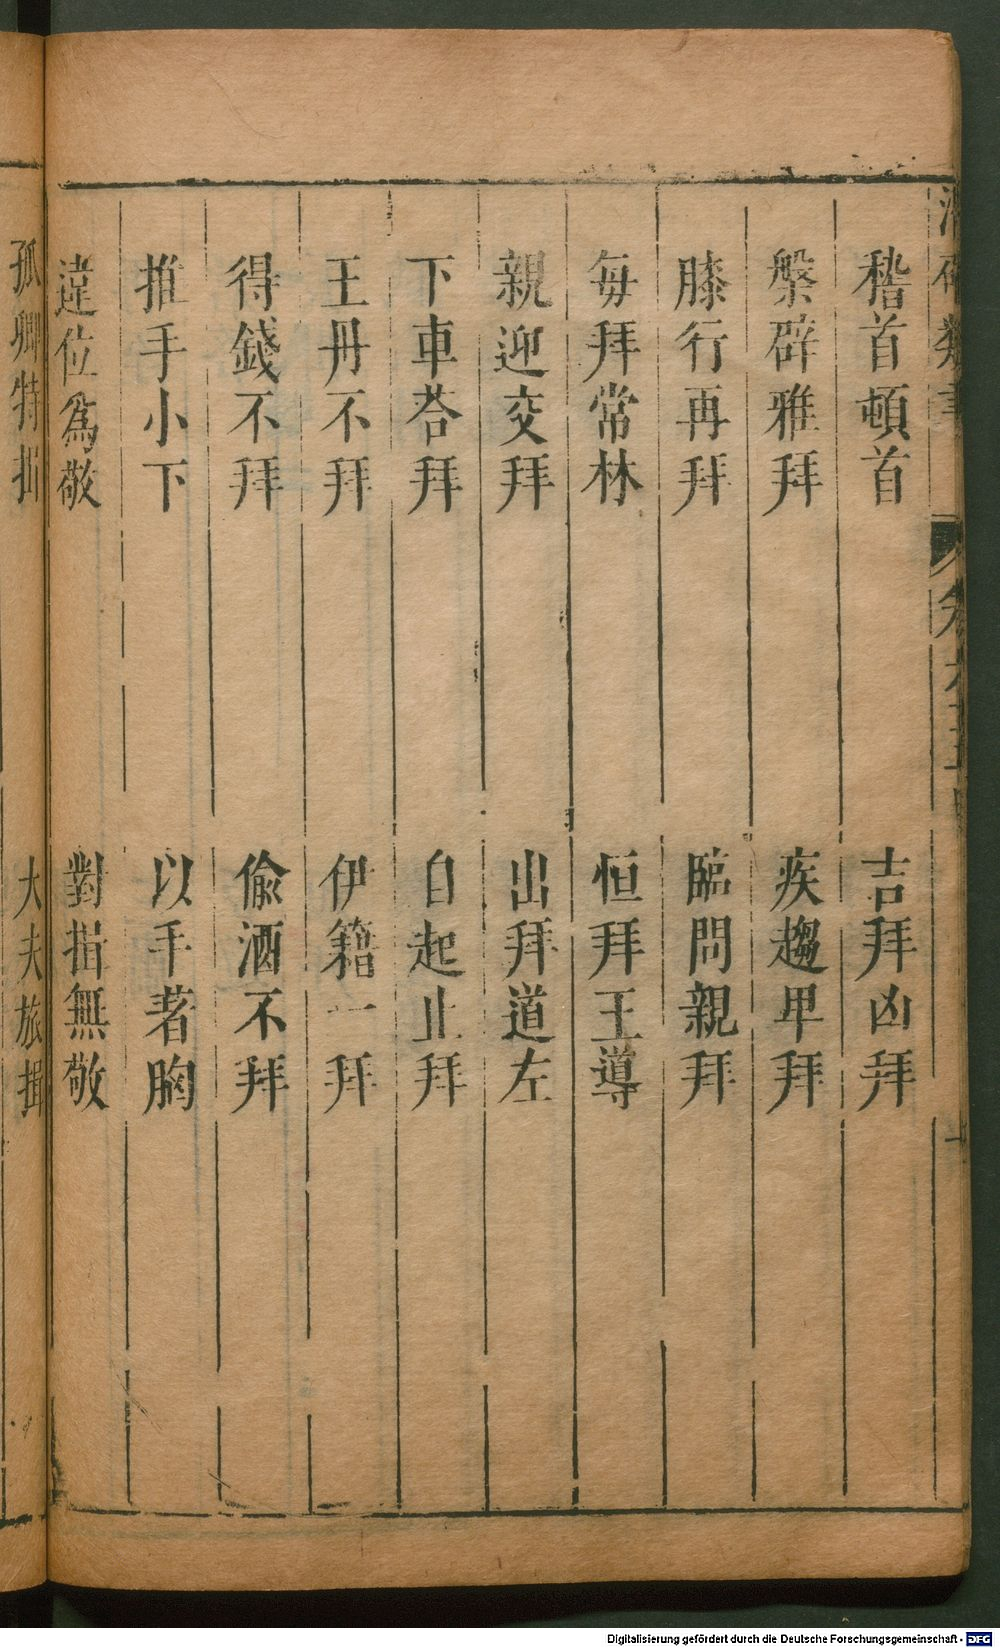 稽首頓首　吉拜凶拜
槃辟雅拜　疾趨卑拜
膝行再拜　臨問親拜
每拜常林　恒拜王導
親迎交拜　出拜道左
下車荅拜　自起止拜
王丹不拜　伊籍一拜
得錢不拜　偷酒不拜
推手小下　以手著胸
違位為敬　對揖無敬
孤卿特揖　大夫旅揖
Digitalisierung gefördert durch die Deutsche Forschungsgemeinschaft - DFG